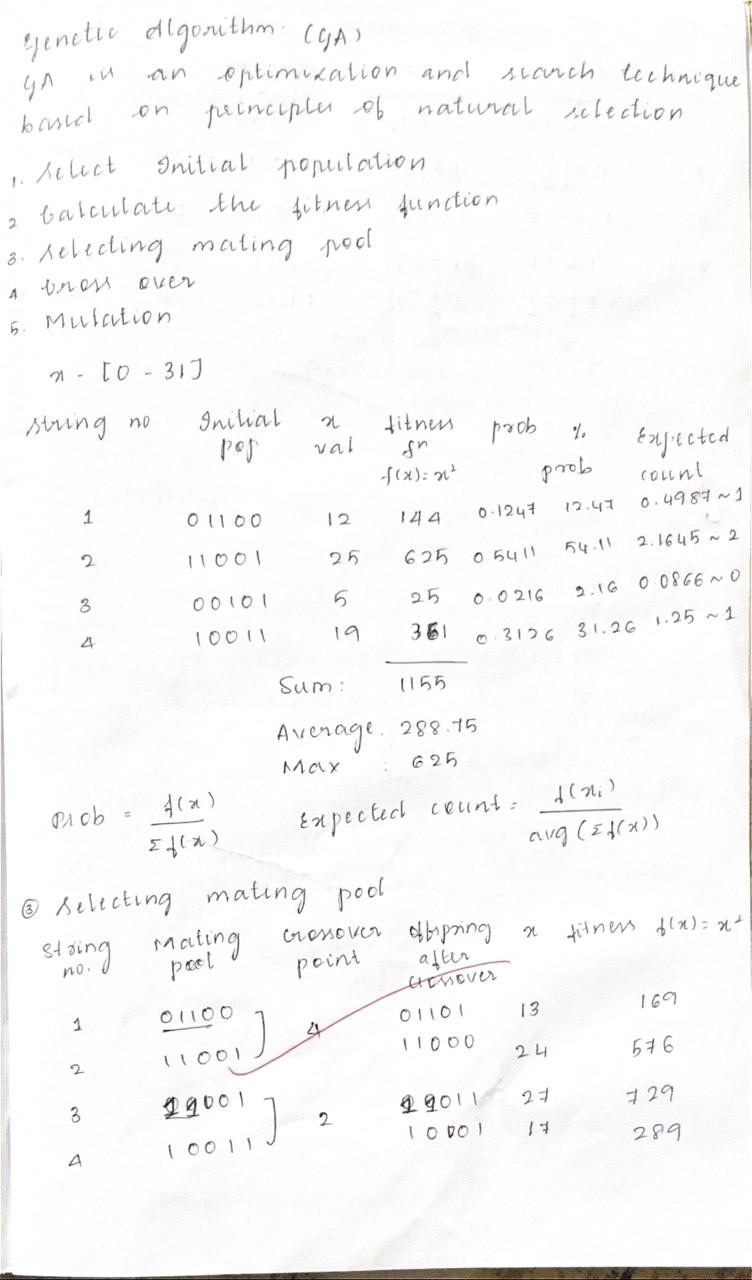 Genetic Algorithm (GA)
GA is an optimization and search technique
based on principles of natural selection
1. Select Initial population
2 Calculate the fitness function
3. Selecting mating pool
4. Cross over
5. Mutation
x - [0 - 31]
String no Initial pop x val fitness fn f(x) = x² prob % prob Expected count
1 01100 12 144 0.1247 12.47 0.4987 ~ 1
2 11001 25 625 0.5411 54.11 2.1645 ~ 2
3 00101 5 25 0.0216 2.16 0.0866 ~ 0
4 10011 19 361 0.3126 31.26 1.25 ~ 1
Sum: 1155
Average. 288.75
Max : 625
Prob = f(x) / Σf(x) Expected count = f(xi) / avg (Σf(x))
③ Selecting mating pool
String no. Mating pool Crossover point offspring after crossover x fitness f(x) = x²
1 01100 4 01101 13 169
2 11001 11000 24 576
3 11001 2 11011 27 729
4 10011 10001 17 289